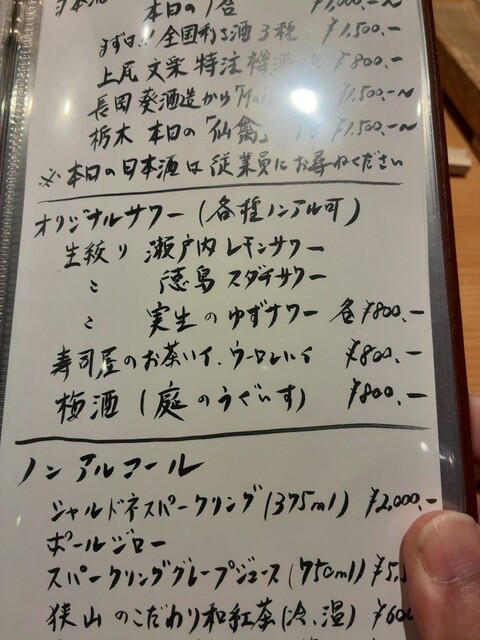 日本酒
本日の1合 ¥1,000.-〜
まずは!! 全国利き酒3種 ¥1,500.-
上尾 文楽 特注樽酒 ¥800.-
長岡 葵酒造から「Mai ¥1,500.-〜
栃木 本日の「仙禽」 ¥1,500.-〜
※本日の日本酒は従業員にお尋ねください
オリジナルサワー (各種ノンアル可)
生絞り 瀬戸内レモンサワー
〃 徳島スダチサワー
〃 実生のゆずサワー 各¥800.-
寿司屋のお茶ハイ、ウーロンハイ ¥800.-
梅酒 (庭のうぐいす) ¥800.-
ノンアルコール
シャルドネスパークリング(375ml) ¥2,000.-
ポールジロー
スパークリンググレープジュース(750ml) ¥5,5
狭山のこだわり和紅茶(冷、温) ¥600